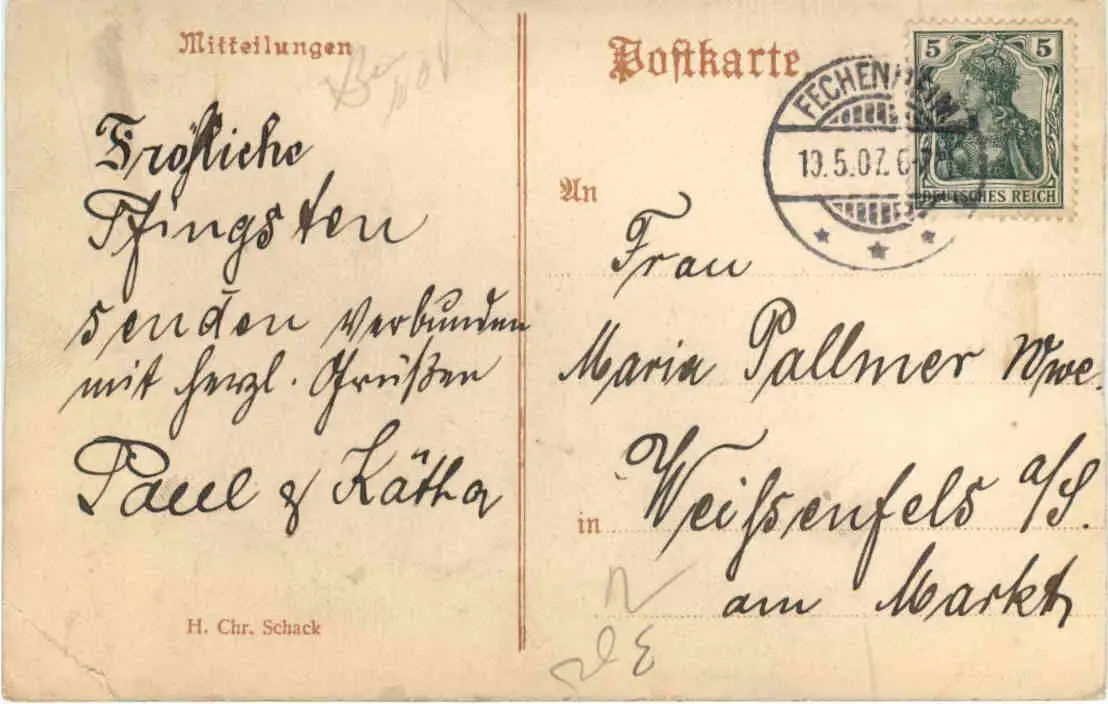 Mitteilungen
Fröhliche
Pfingsten
senden verbunden
mit herzl. Grüßen
Paul & Käthe
H. Chr. Schack
Postkarte
5 5
DEUTSCHES REICH
FECHENHEIM
19.5.07. 6-7
An
Frau
Maria Pallmer Wwe.
in Weißenfels a/S.
am Markt